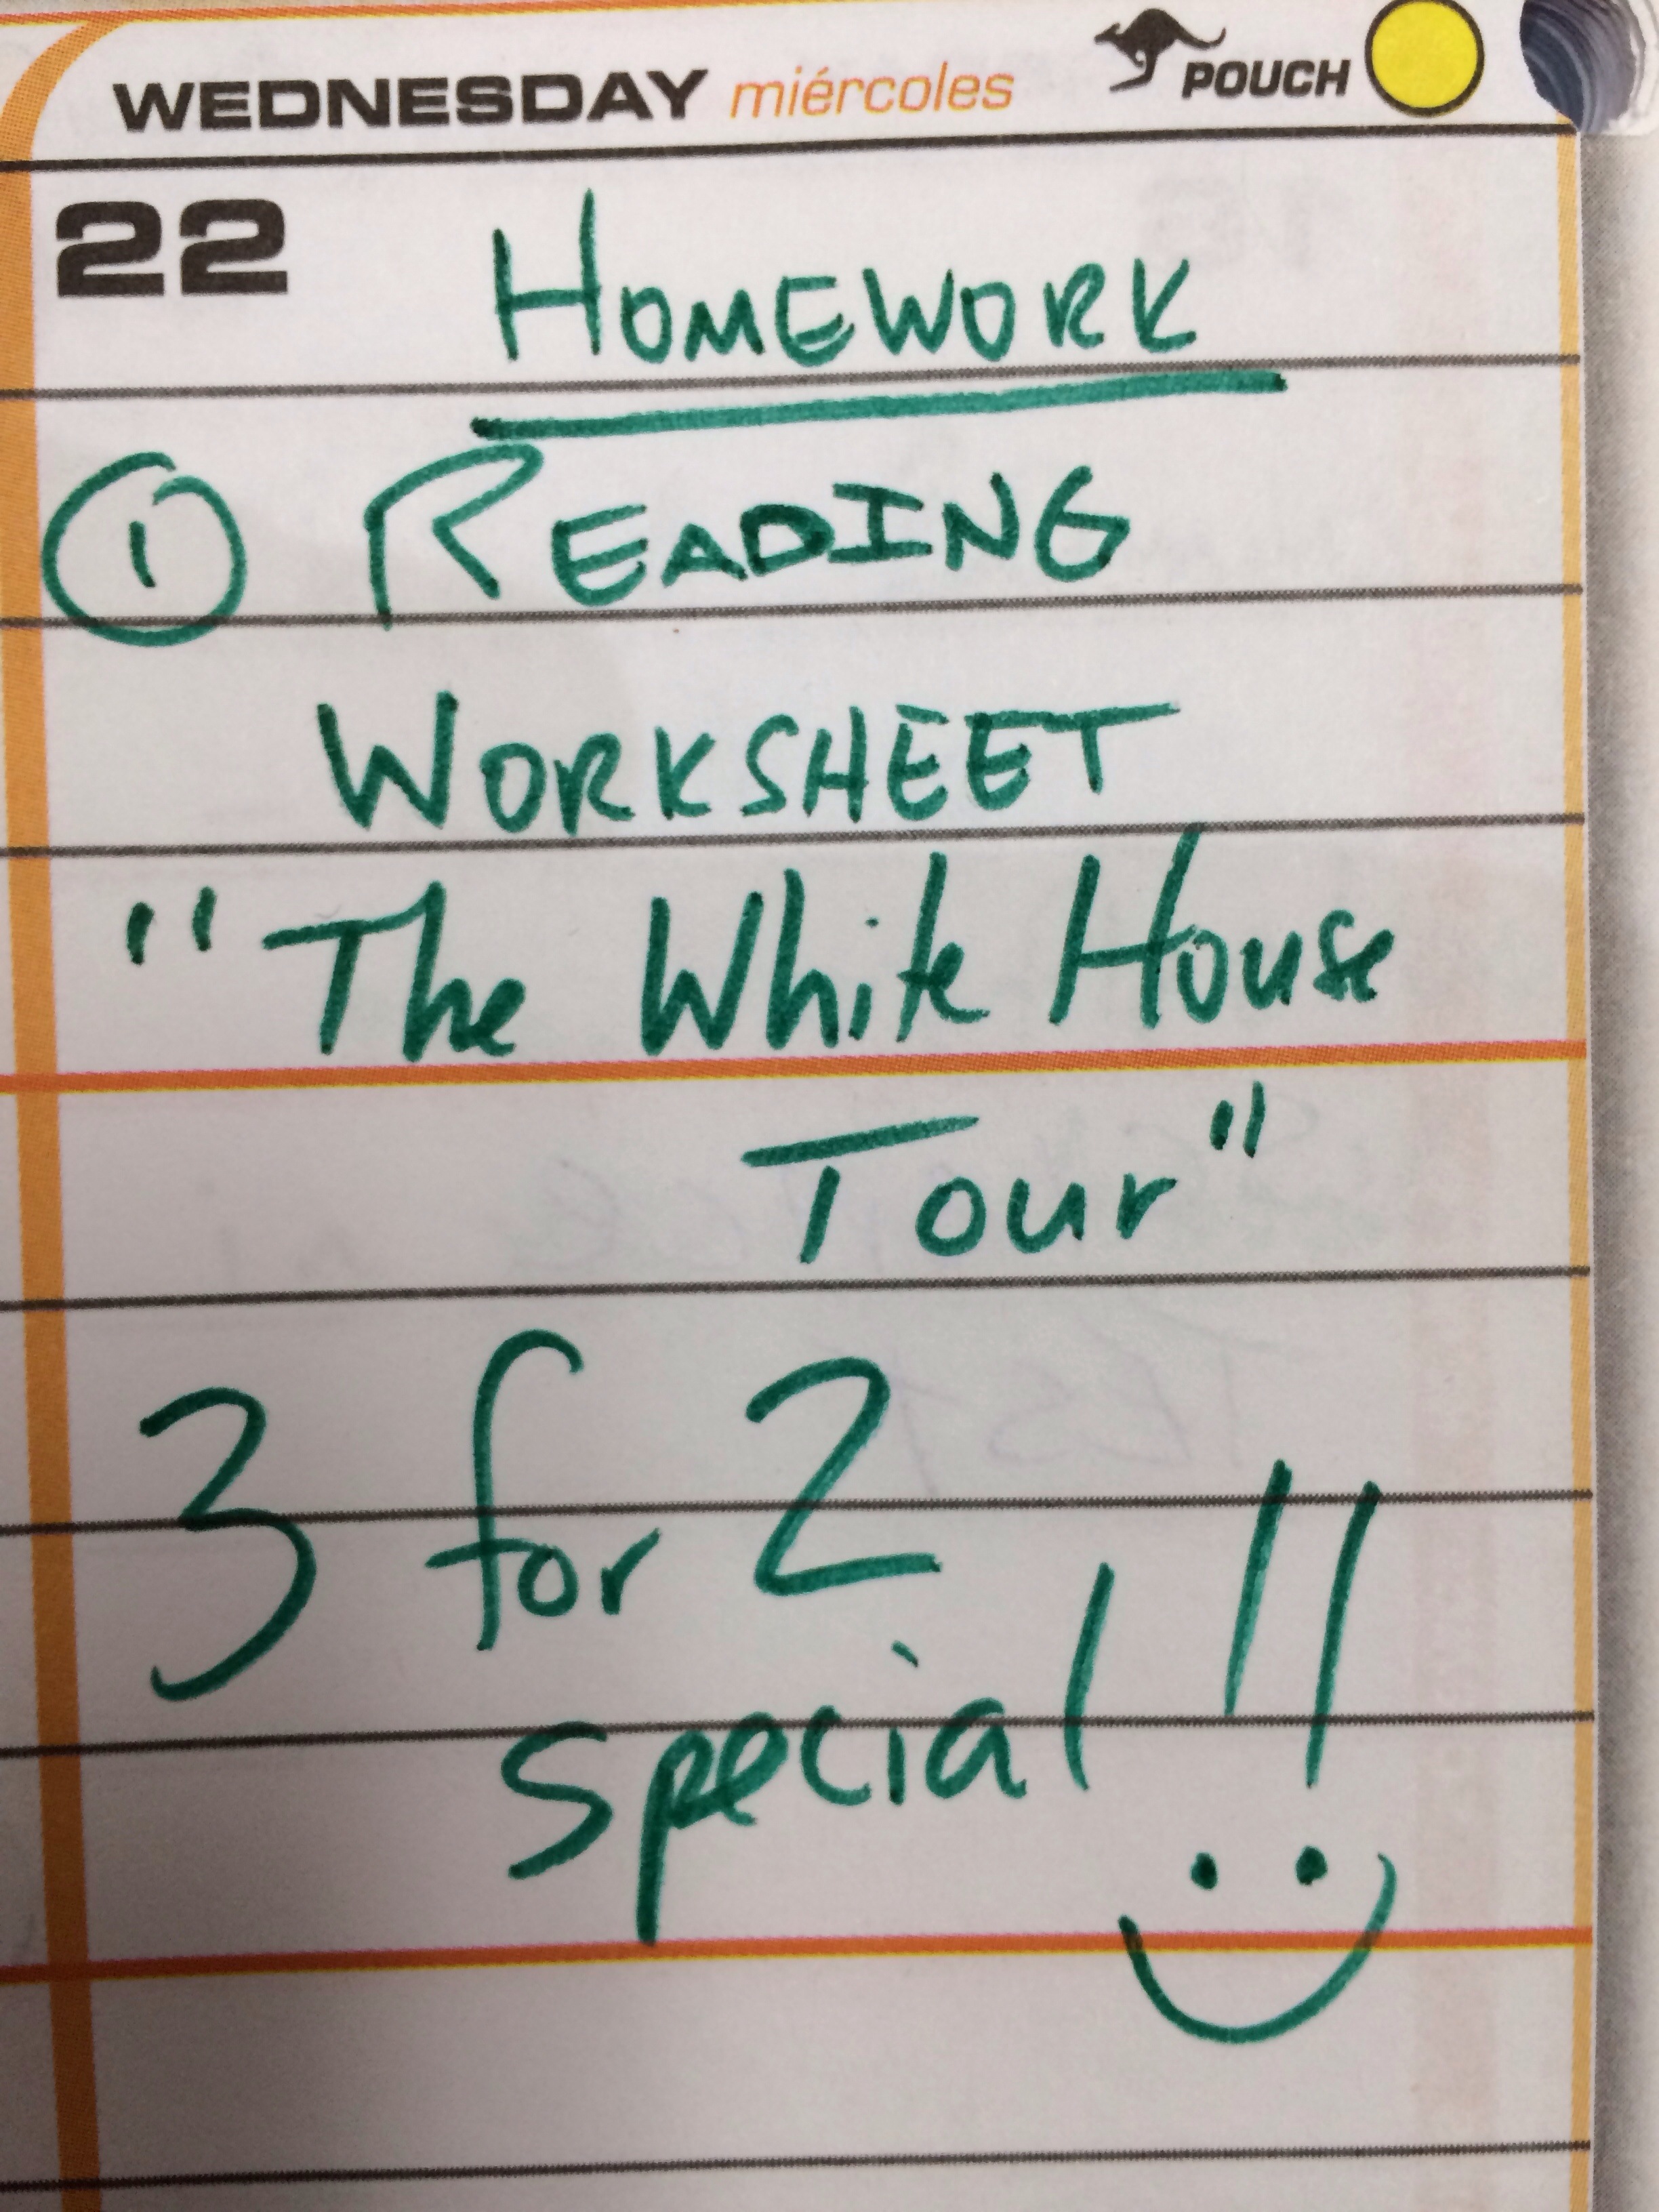 WEDNESDAY miércoles POUCH
22 HOMEWORK
1 READING
WORKSHEET
"The White House
Tour"
3 for 2
special!!